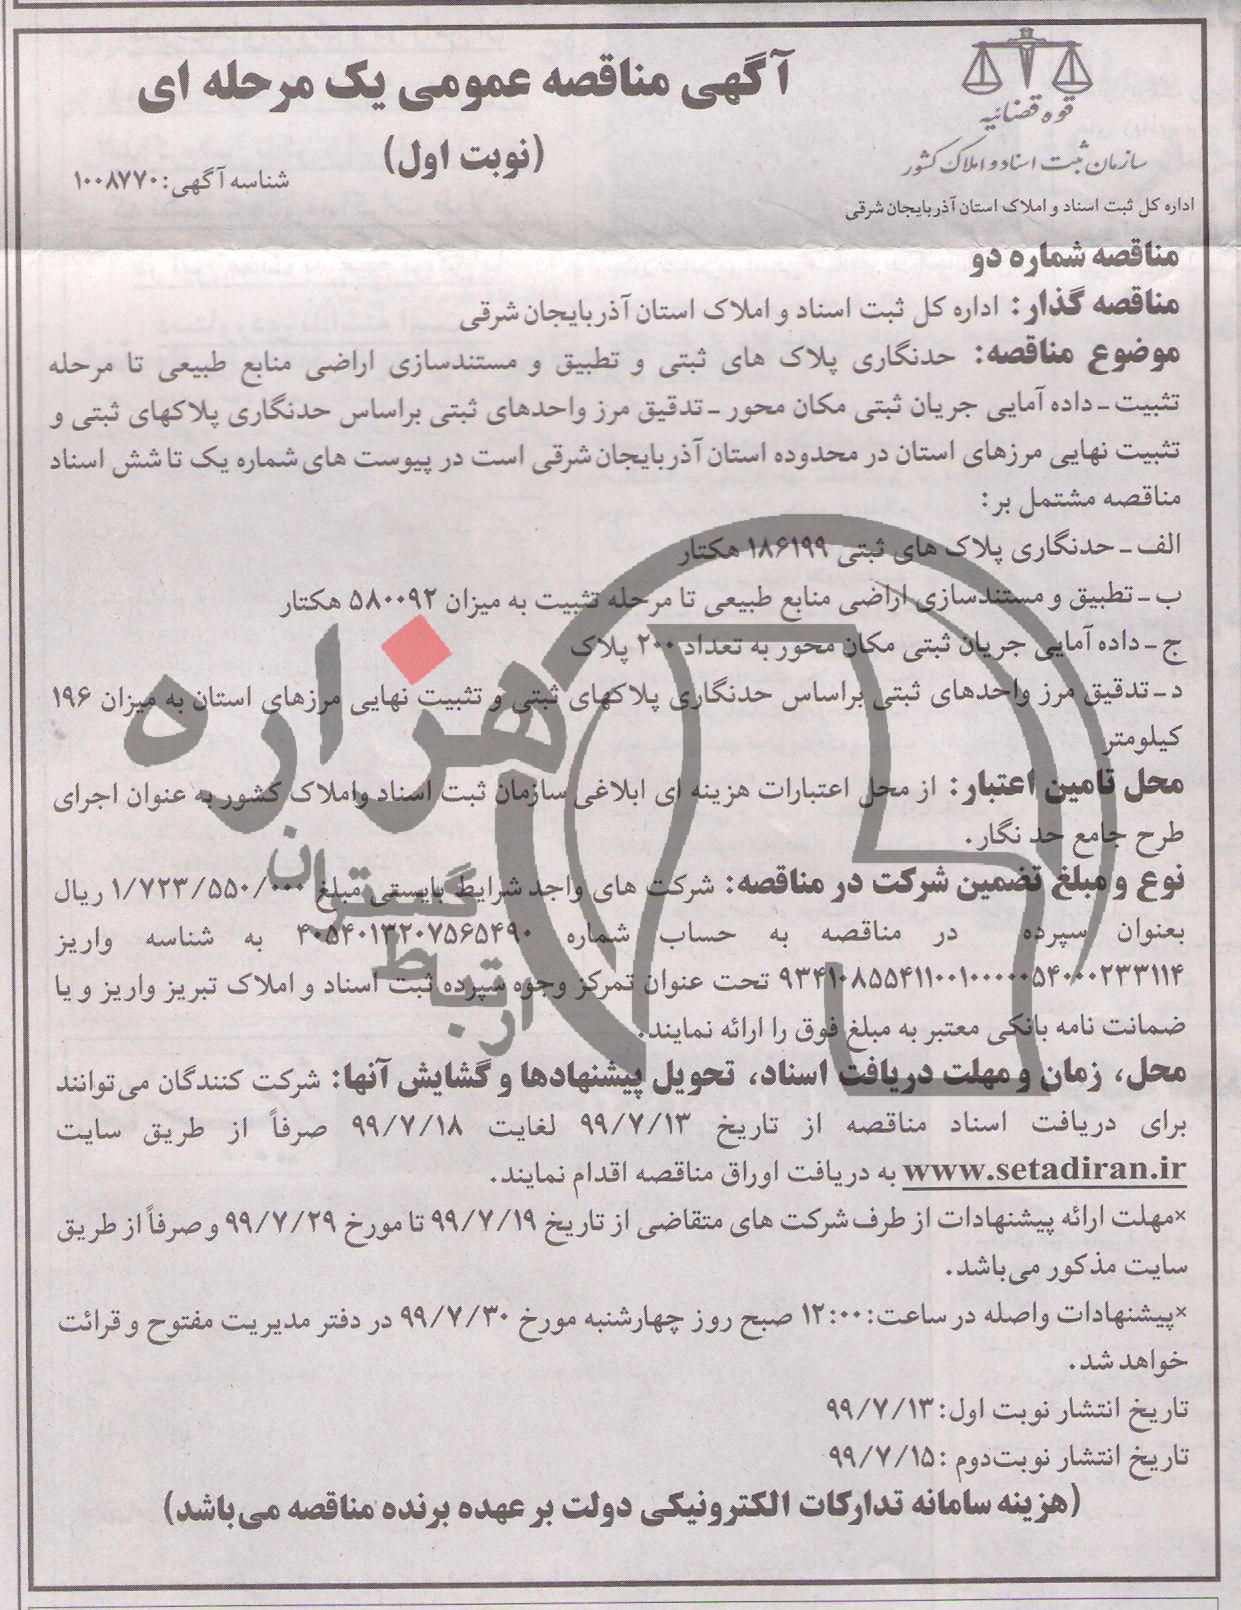 قوه قضائیه
سازمان ثبت اسناد و املاک کشور
اداره کل ثبت اسناد و املاک استان آذربایجان شرقی
آگهی مناقصه عمومی یک مرحله ای
(نوبت اول)
شناسه آگهی: ۱۰۰۸۷۷۰
مناقصه شماره دو
مناقصه گذار: اداره کل ثبت اسناد و املاک استان آذربایجان شرقی
موضوع مناقصه: حدنگاری پلاک های ثبتی و تطبیق و مستندسازی اراضی منابع طبیعی تا مرحله
تثبیت ـ داده آمایی جریان ثبتی مکان محور ـ تدقیق مرز واحدهای ثبتی براساس حدنگاری پلاکهای ثبتی و
تثبیت نهایی مرزهای استان در محدوده استان آذربایجان شرقی است در پیوست های شماره یک تا شش اسناد
مناقصه مشتمل بر:
الف ـ حدنگاری پلاک های ثبتی ۱۸۶۱۹۹ هکتار
ب ـ تطبیق و مستندسازی اراضی منابع طبیعی تا مرحله تثبیت به میزان ۵۸۰۰۹۲ هکتار
ج ـ داده آمایی جریان ثبتی مکان محور به تعداد ۲۰۰ پلاک
د ـ تدقیق مرز واحدهای ثبتی براساس حدنگاری پلاکهای ثبتی و تثبیت نهایی مرزهای استان به میزان ۱۹۶
کیلومتر
محل تامین اعتبار: از محل اعتبارات هزینه ای ابلاغی سازمان ثبت اسناد واملاک کشور به عنوان اجرای
طرح جامع حد نگار.
نوع و مبلغ تضمین شرکت در مناقصه: شرکت های واجد شرایط بایستی مبلغ ۱/۷۲۳/۵۵۰/۰۰۰ ریال
بعنوان سپرده در مناقصه به حساب شماره ۴۰۵۴۰۱۳۲۰۷۵۶۵۴۹۰ به شناسه واریز
۹۳۴۱۰۸۵۵۴۱۱۰۰۱۰۰۰۰۰۰۵۴۰۰۰۲۳۳۱۱۴ تحت عنوان تمرکز وجوه سپرده ثبت اسناد و املاک تبریز واریز و یا
ضمانت نامه بانکی معتبر به مبلغ فوق را ارائه نمایند.
محل، زمان و مهلت دریافت اسناد، تحویل پیشنهادها و گشایش آنها: شرکت کنندگان می‌توانند
برای دریافت اسناد مناقصه از تاریخ ۹۹/۷/۱۳ لغایت ۹۹/۷/۱۸ صرفاً از طریق سایت
www.setadiran.ir به دریافت اوراق مناقصه اقدام نمایند.
×مهلت ارائه پیشنهادات از طرف شرکت های متقاضی از تاریخ ۹۹/۷/۱۹ تا مورخ ۹۹/۷/۲۹ و صرفاً از طریق
سایت مذکور می‌باشد.
×پیشنهادات واصله در ساعت: ۱۲:۰۰ صبح روز چهارشنبه مورخ ۹۹/۷/۳۰ در دفتر مدیریت مفتوح و قرائت
خواهد شد.
تاریخ انتشار نوبت اول: ۹۹/۷/۱۳
تاریخ انتشار نوبت‌دوم : ۹۹/۷/۱۵
(هزینه سامانه تدارکات الکترونیکی دولت بر عهده برنده مناقصه می‌باشد)
هزاره
گستران
ارتباط